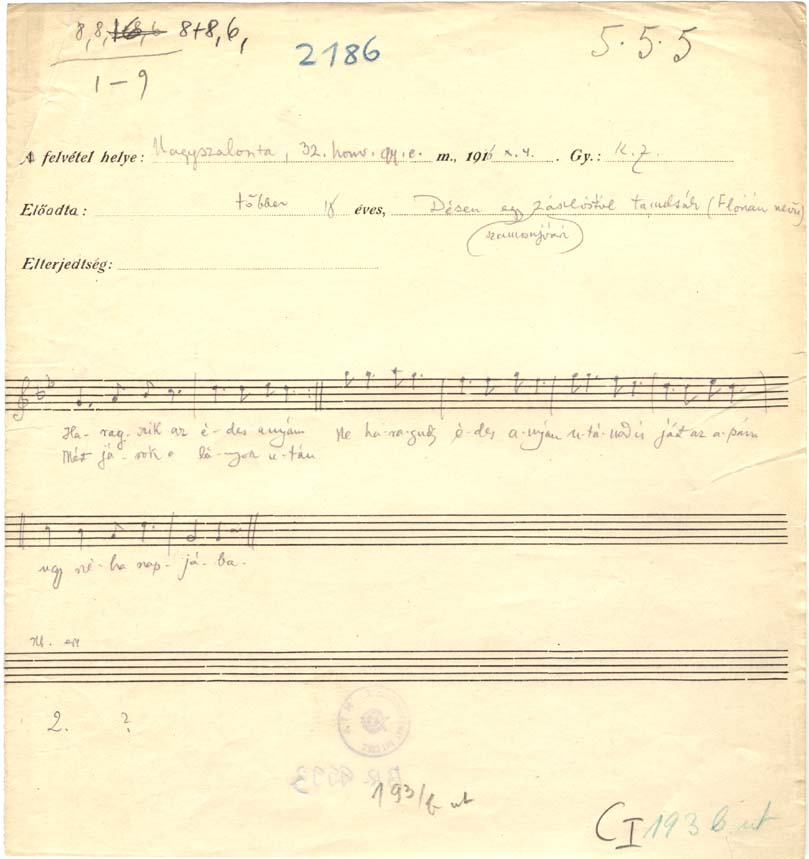 8, 8, 8+8, 6,
2186
5.5.5
1-9
A felvétel helye: Nagyszalonta, 32. honv. gy. e. m., 1916 X. 4. Gy.: K. Z.
Előadta: többen éves, Désen egy zászlóstól tanulták (Flórián nevű)
szamosújvár
Elterjedtség:
Ha-rag-szik az é-des anyám Ne ha-ra-gudj é-des a-nyám u-tá-nad is járt az a-pám
Mért já-rok a lá-nyok u-tán
ugy né-ha nap-já-ba.
2. ?
193/b ut
C I 193 b ut